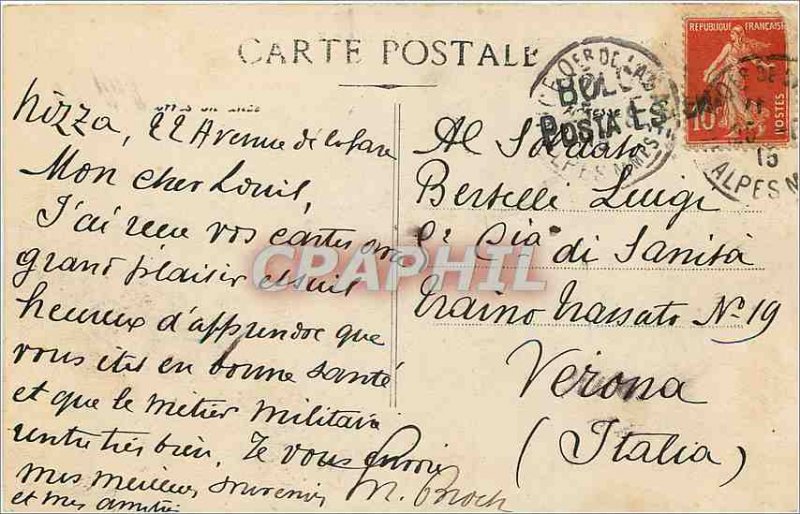 CARTE POSTALE
REPUBLIQUE FRANÇAISE
10c
POSTES
POSTA ES
15
ALPES M
Nizza, 22 Avenue de la Gare
Mon cher Louis,
J'ai reçu vos cartes avec
grand plaisir et suis
heureux d'apprendre que
vous êtes en bonne santé
et que le métier militaire
très bien. Je vous envoie
mes meilleurs souvenirs
et mes amitiés
Al Soldato
Bertelli Luigi
Cia di Sanità
Verona
(Italia)
CPAPHIL